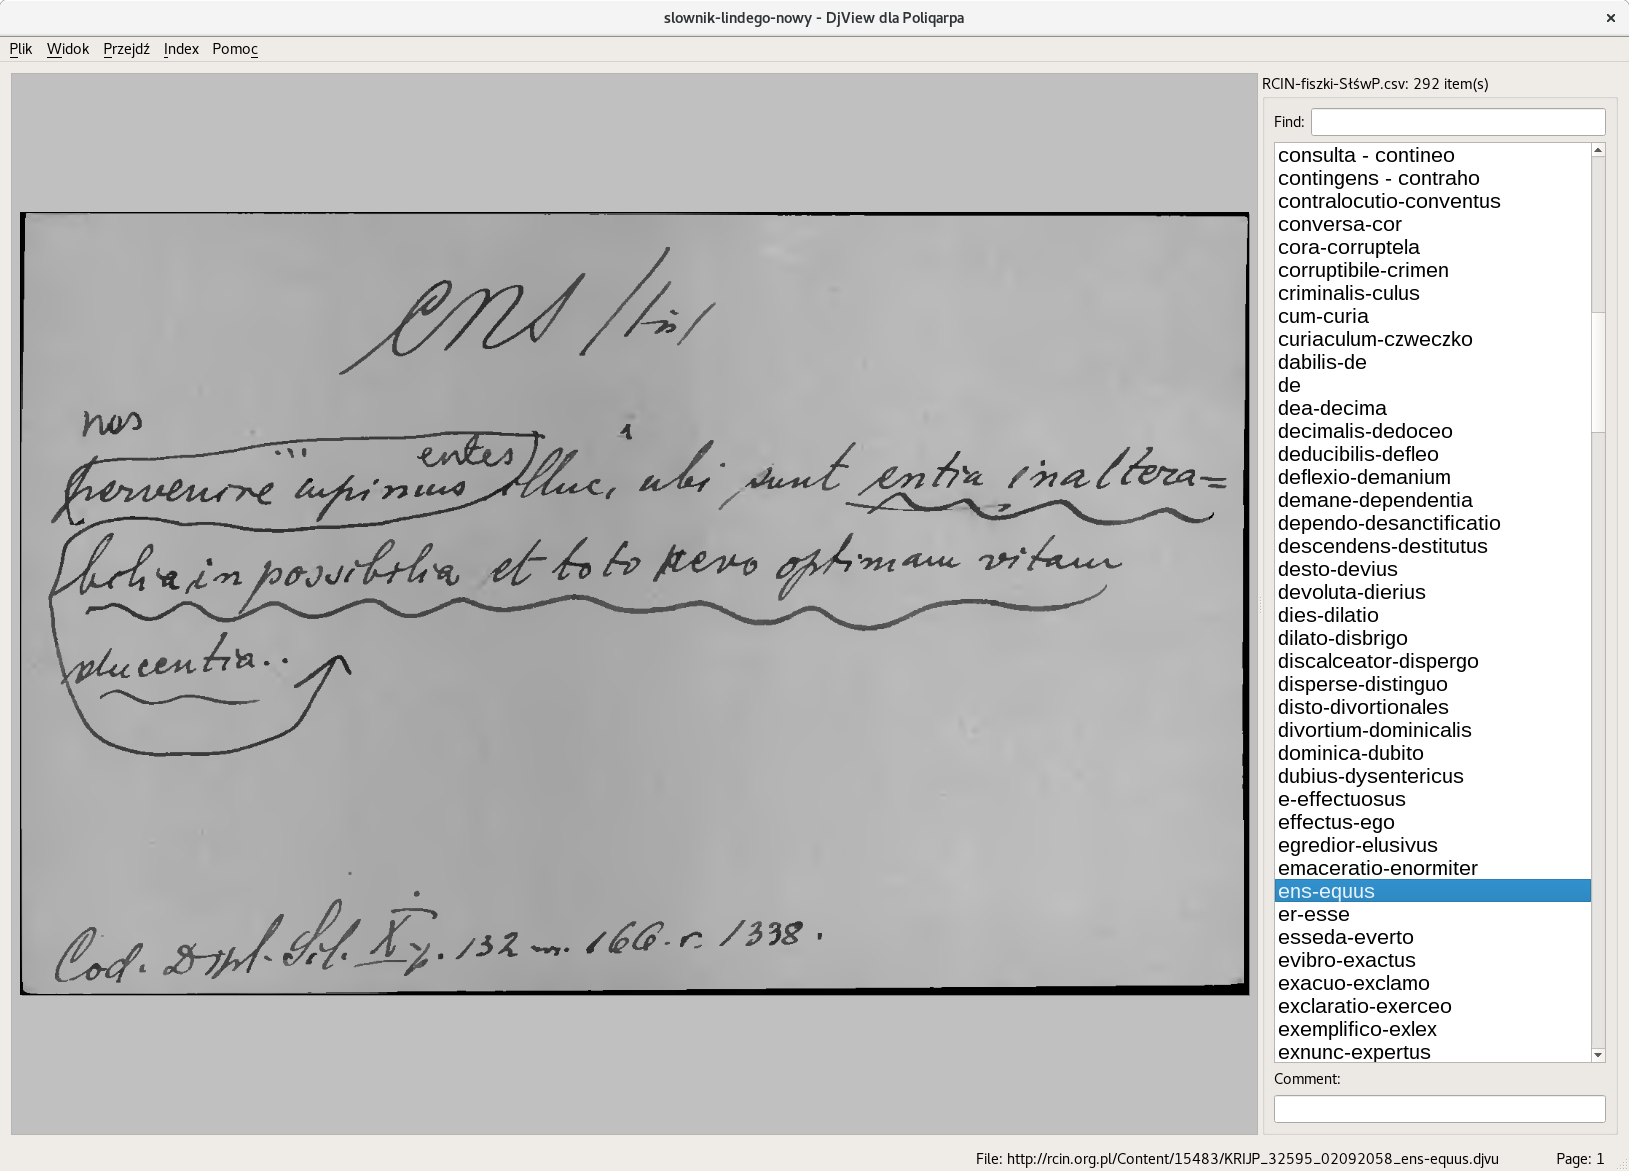 slownik-lindego-nowy - DjView dla Poliqarpa
Plik Widok Przejdź Index Pomoc
ens /tis/
nos
pervenire cupimus entes illuc, ubi sunt entia inaltera=
bilia in possibilia et toto aevo optimam vitam
ducentia..
Cod. Dypl. Sil. X p. 132 n. 166. r. 1338.
RCIN-fiszki-SłśwP.csv: 292 item(s)
Find:
consulta - contineo
contingens - contraho
contralocutio-conventus
conversa-cor
cora-corruptela
corruptibile-crimen
criminalis-culus
cum-curia
curiaculum-czweczko
dabilis-de
de
dea-decima
decimalis-dedoceo
deducibilis-defleo
deflexio-demanium
demane-dependentia
dependo-desanctificatio
descendens-destitutus
desto-devius
devoluta-dierius
dies-dilatio
dilato-disbrigo
discalceator-dispergo
disperse-distinguo
disto-divortionales
divortium-dominicalis
dominica-dubito
dubius-dysentericus
e-effectuosus
effectus-ego
egredior-elusivus
emaceratio-enormiter
ens-equus
er-esse
esseda-everto
evibro-exactus
exacuo-exclamo
exclaratio-exerceo
exemplifico-exlex
exnunc-expertus
Comment:
File: http://rcin.org.pl/Content/15483/KRIJP_32595_02092058_ens-equus.djvu Page: 1